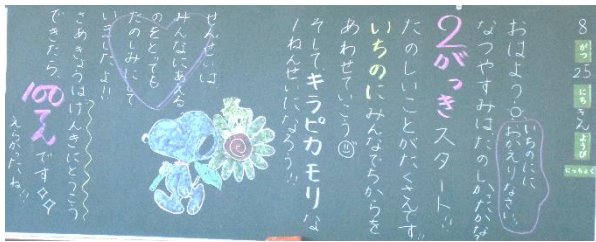 8がつ25にちきんようび
にっちょく
おはよう。
いちのにに
おかえりなさい。
なつやすみはたのしかったかな
2がっきスタート!!
たのしいことがたくさんです!!
いちのにみんなでちからを
あわせていこう
そしてキラピカモリな
1ねんせいになろう!!
せんせいは
みんなにあえる
のをとっても
たのしみにして
いましたよ!!
さあきょうはげんきにとうこう
できたら、100てんです
えらかったね!!